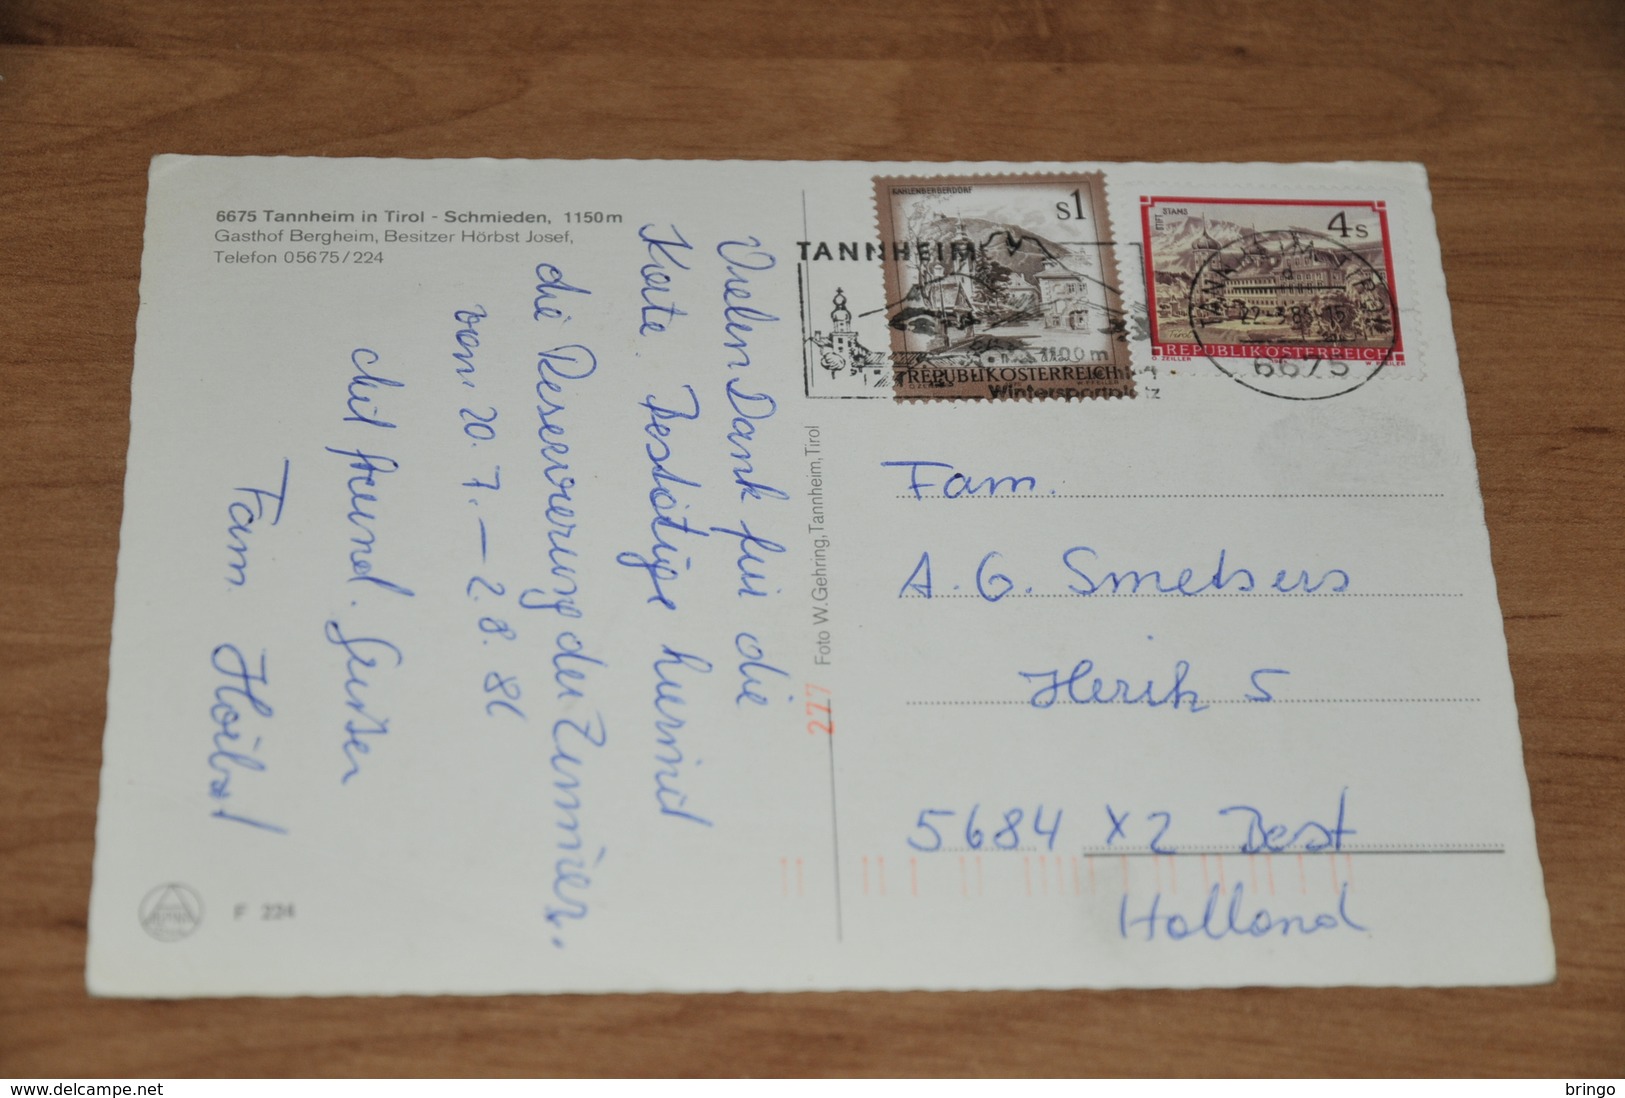 6675 Tannheim in Tirol - Schmieden, 1150m
Gasthof Bergheim, Besitzer Hörbst Josef,
Telefon 05675/224
Vielen Dank für die
Karte. Bestätige hiermit
die Reservierung der Zimmer.
vom 20.7. – 2.8. 86
Mit freundl. Grüßen
Fam. Hörbst
F 224
Foto W. Gehring, Tannheim, Tirol
277
KAHLENBERGERDORF
s1
REPUBLIK ÖSTERREICH
TANNHEIM
1100 m
Wintersportplatz
STIFT STAMS
4s
REPUBLIK ÖSTERREICH
6675
Fam.
A. G. Smetsers
Herik 5
5684 XZ Best
Holland
www.delcampe.net
bringo